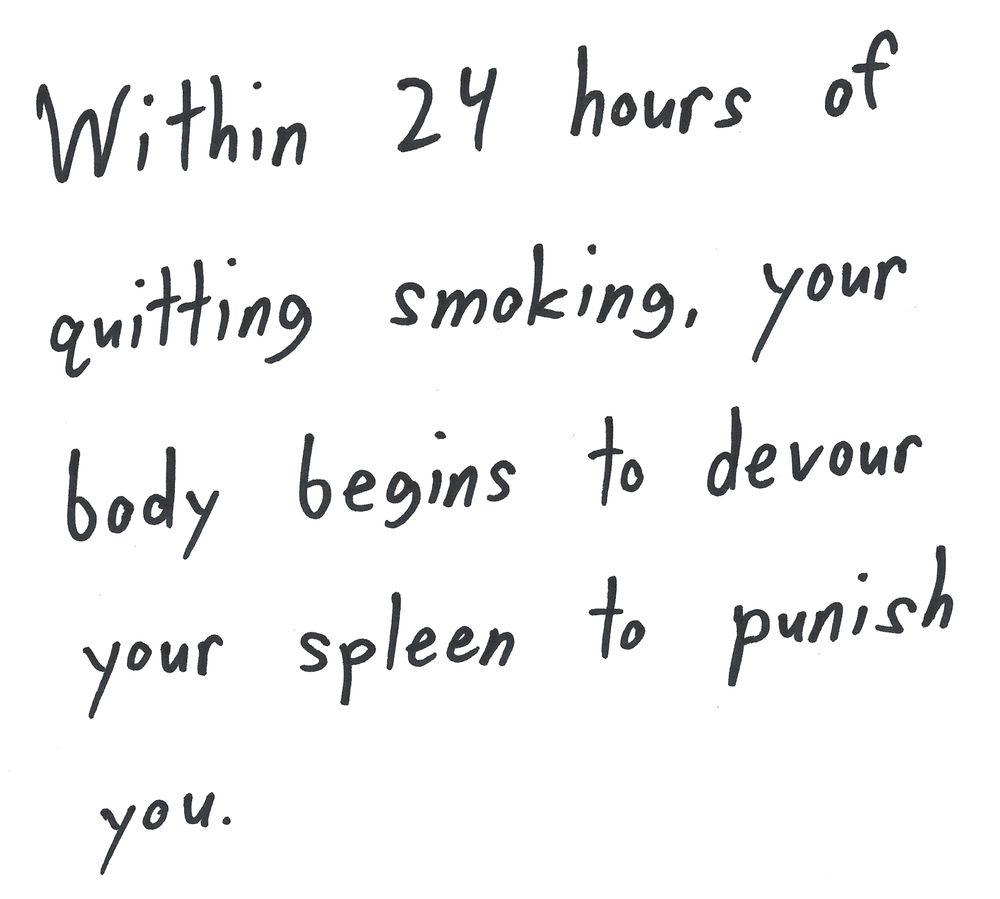 Within 24 hours of
quitting smoking, your
body begins to devour
your spleen to punish
you.